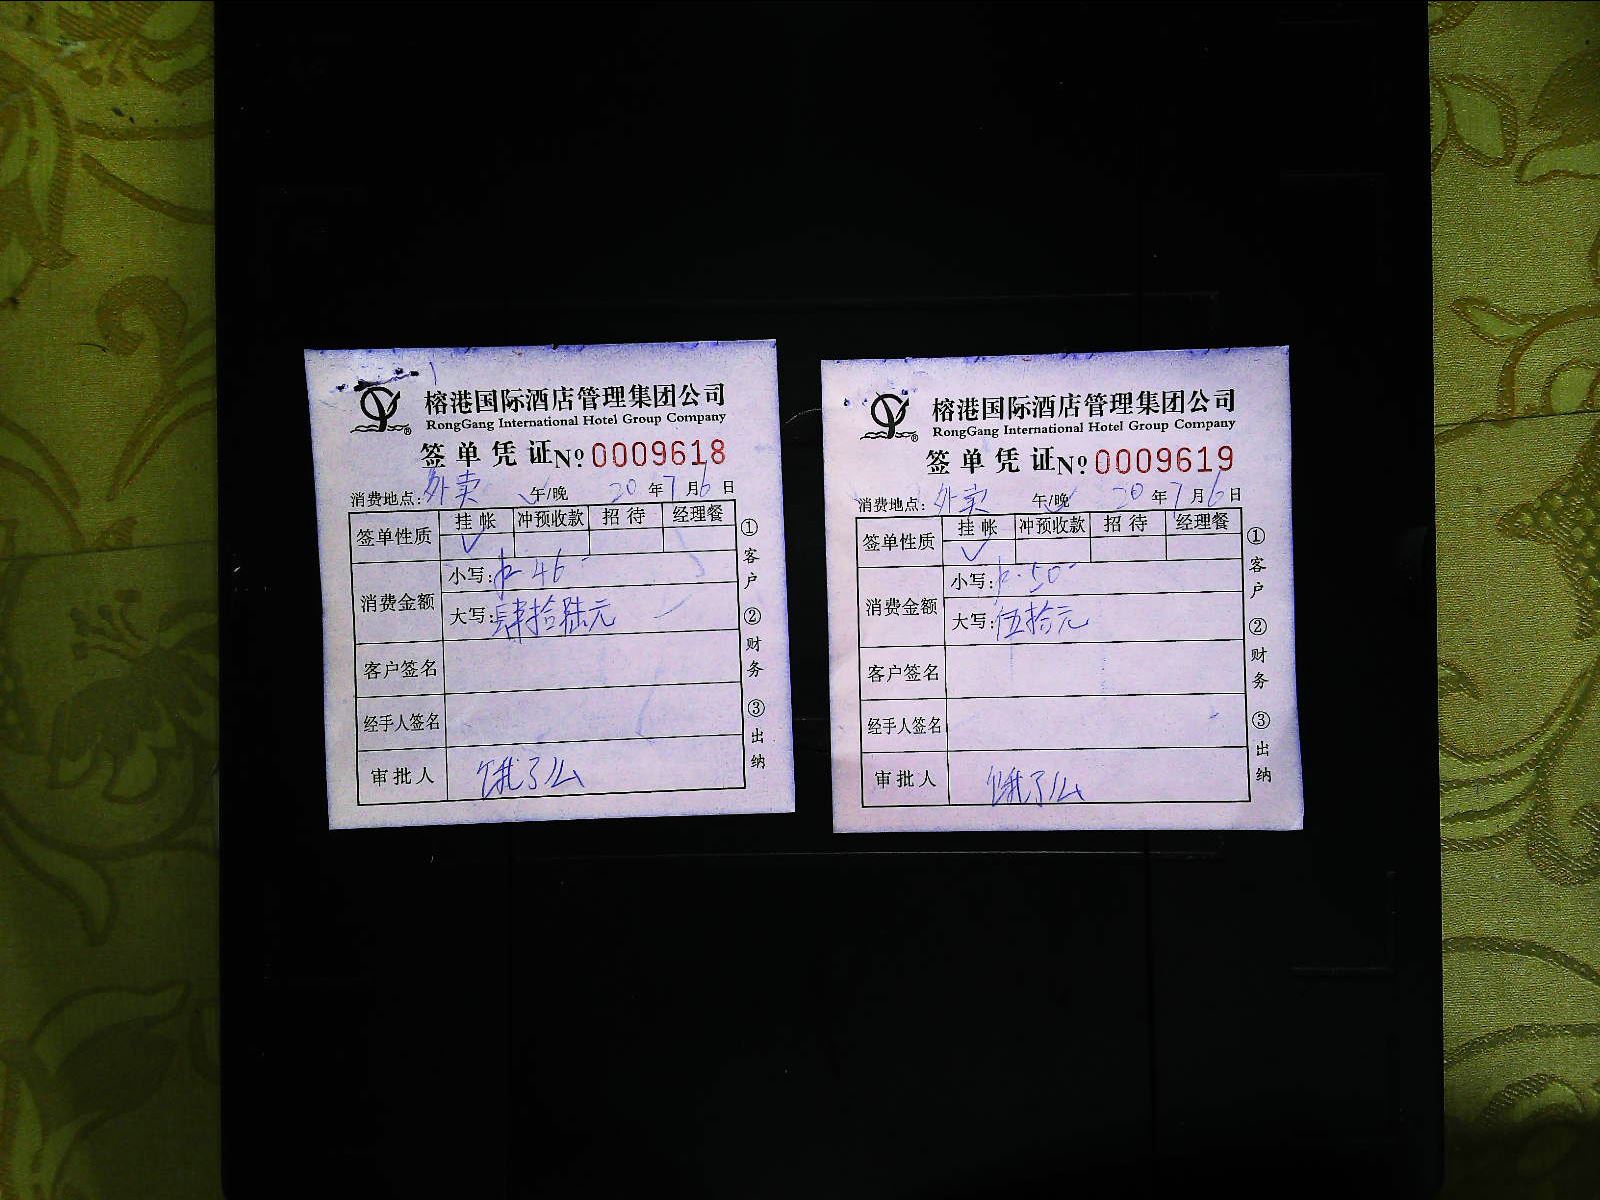 榕港国际酒店管理集团公司
RongGang International Hotel Group Company
签单凭证 Nº 0009618
消费地点: 外卖 午/晚 20年7月6日
签单性质 挂帐 冲预收款 招待 经理餐
消费金额
小写: 46-
大写: 肆拾陆元
客户签名
经手人签名
审批人 饿了么
①客户 ②财务 ③出纳
榕港国际酒店管理集团公司
RongGang International Hotel Group Company
签单凭证 Nº 0009619
消费地点: 外卖 午/晚 20年7月6日
签单性质 挂帐 冲预收款 招待 经理餐
消费金额
小写: 50-
大写: 伍拾元
客户签名
经手人签名
审批人 饿了么
①客户 ②财务 ③出纳